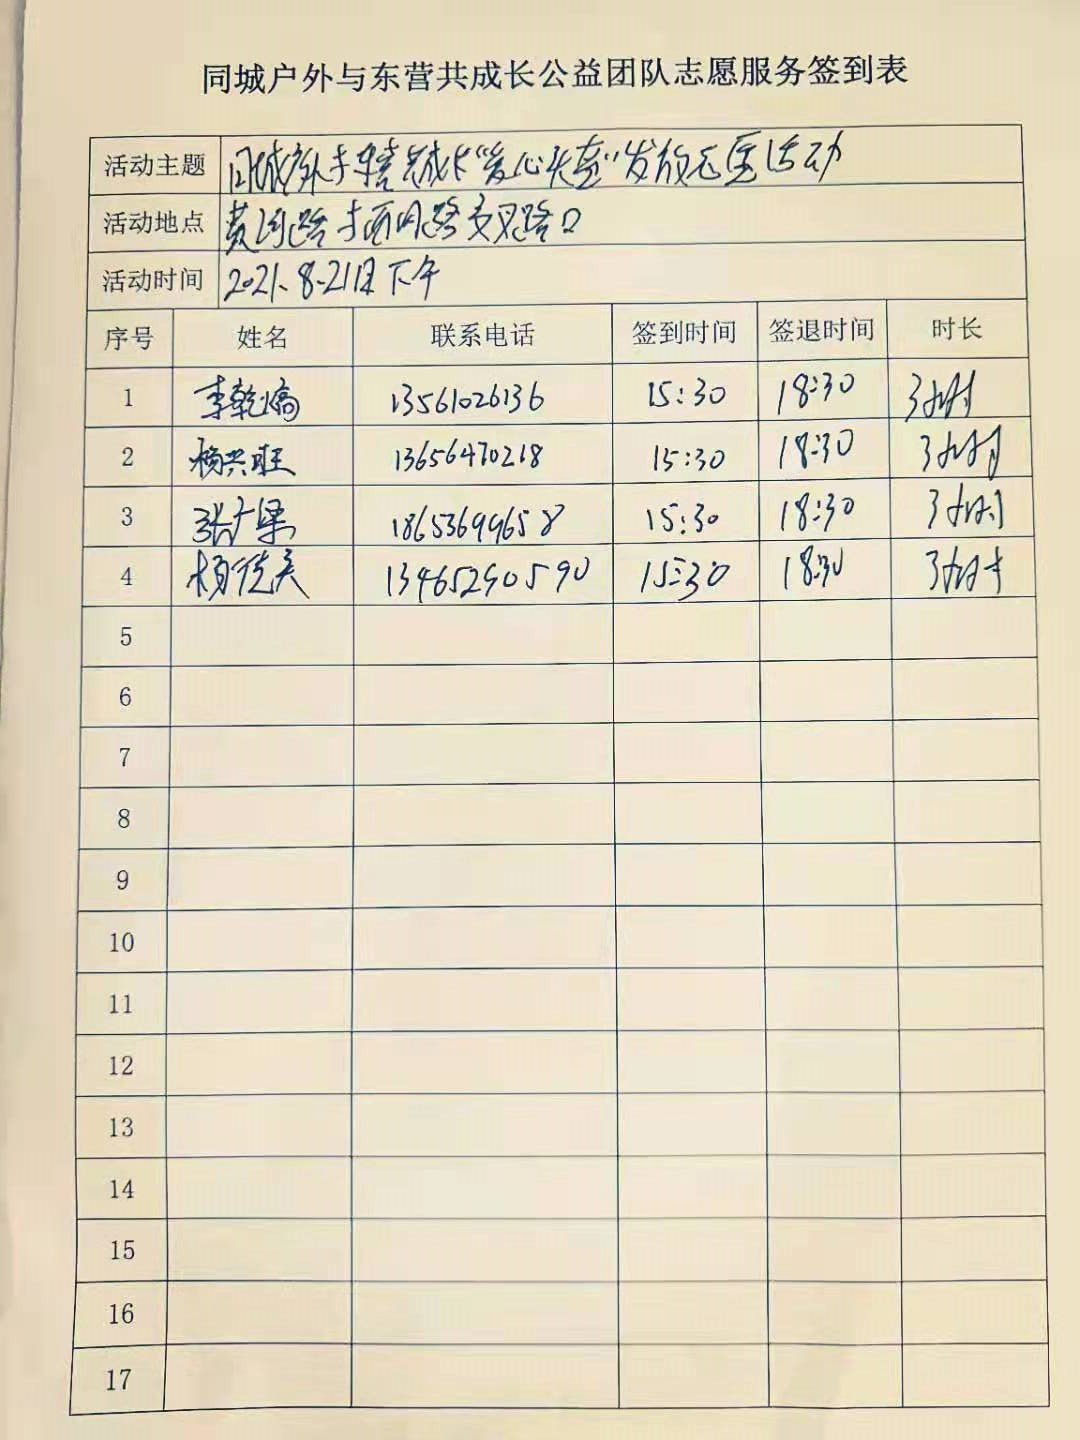 同城户外与东营共成长公益团队志愿服务签到表
活动主题 同城户外与东营共成长“爱心头盔”发放志愿活动
活动地点 黄河路与西四路交叉路口
活动时间 2021.8.21日下午
序号 姓名 联系电话 签到时间 签退时间 时长
1 李乾 13561026136 15:30 18:30 3小时
2 杨兴旺 13656470218 15:30 18:30 3小时
3 张广梁 18653699658 15:30 18:30 3小时
4 杨 13465290590 15:30 18:30 3小时
5
6
7
8
9
10
11
12
13
14
15
16
17